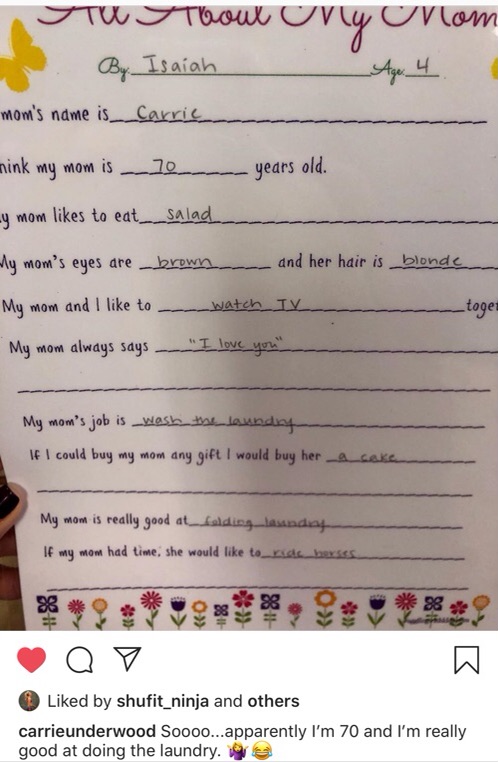 All About My Mom
By: Isaiah Age: 4
mom's name is Carrie
hink my mom is 70 years old.
y mom likes to eat salad
My mom's eyes are brown and her hair is blonde
My mom and I like to watch TV toge
My mom always says "I love you"
My mom's job is wash the laundry
If I could buy my mom any gift I would buy her a cake
My mom is really good at folding laundry
If my mom had time, she would like to ride horses
Liked by shufit_ninja and others
carrieunderwood Soooo...apparently I'm 70 and I'm really
good at doing the laundry. 🤷‍♀️😂